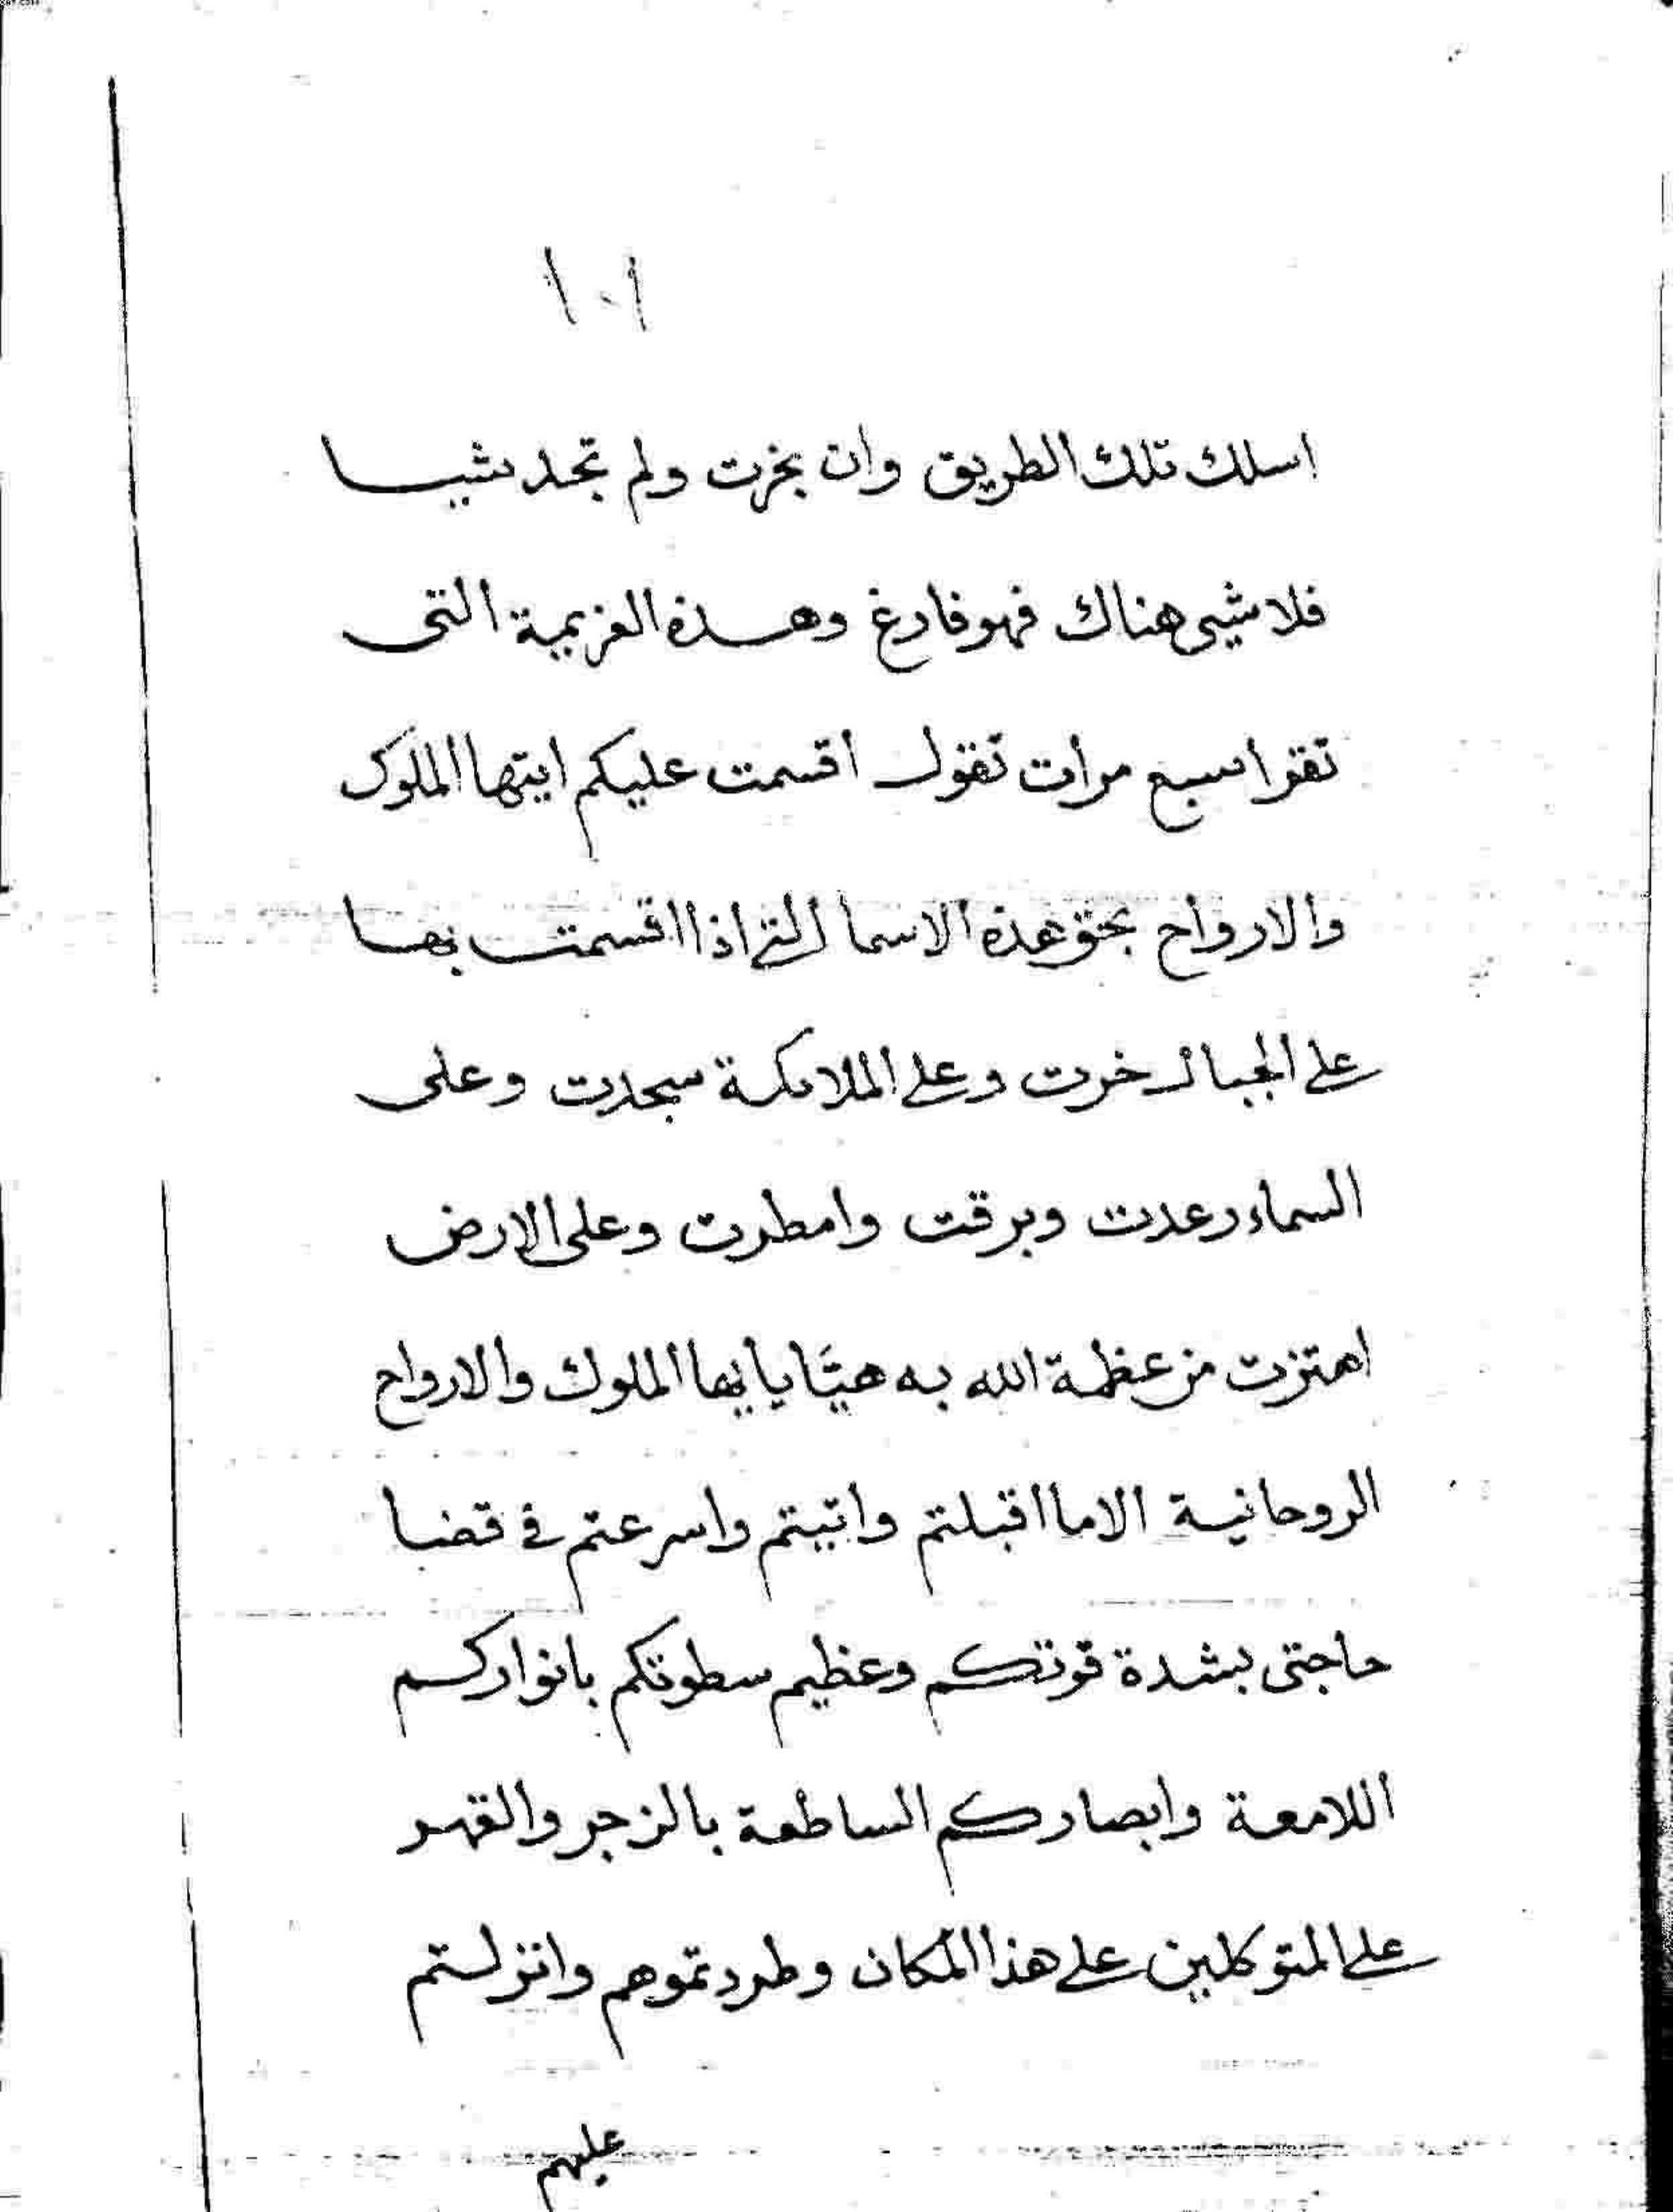 ١٠١
اسلك تلك الطريق وان بخرت ولم تجد شيا
فلا شيى هناك فهو فارغ وهذه العزيمة التى
تقرا سبع مرات تقول اقسمت عليكم ايتها الملوك
والارواح بحق هذه الاسما التى اذا اقسمت بها
على الجبال خرت وعلى الملايكة سجدت وعلى
السماء رعدت وبرقت وامطرت وعلى الارض
اهتزت من عظمة الله به هيَّا يا ايها الملوك والارواح
الروحانية الا ما اقبلتم واتيتم واسرعتم فى قضا
حاجتى بشدة قوتكم وعظيم سطوتكم بانواركم
اللامعة وابصاركم الساطعة بالزجر والقهر
على المتوكلين على هذا المكان وطردتموهم وانزلتم
عليهم